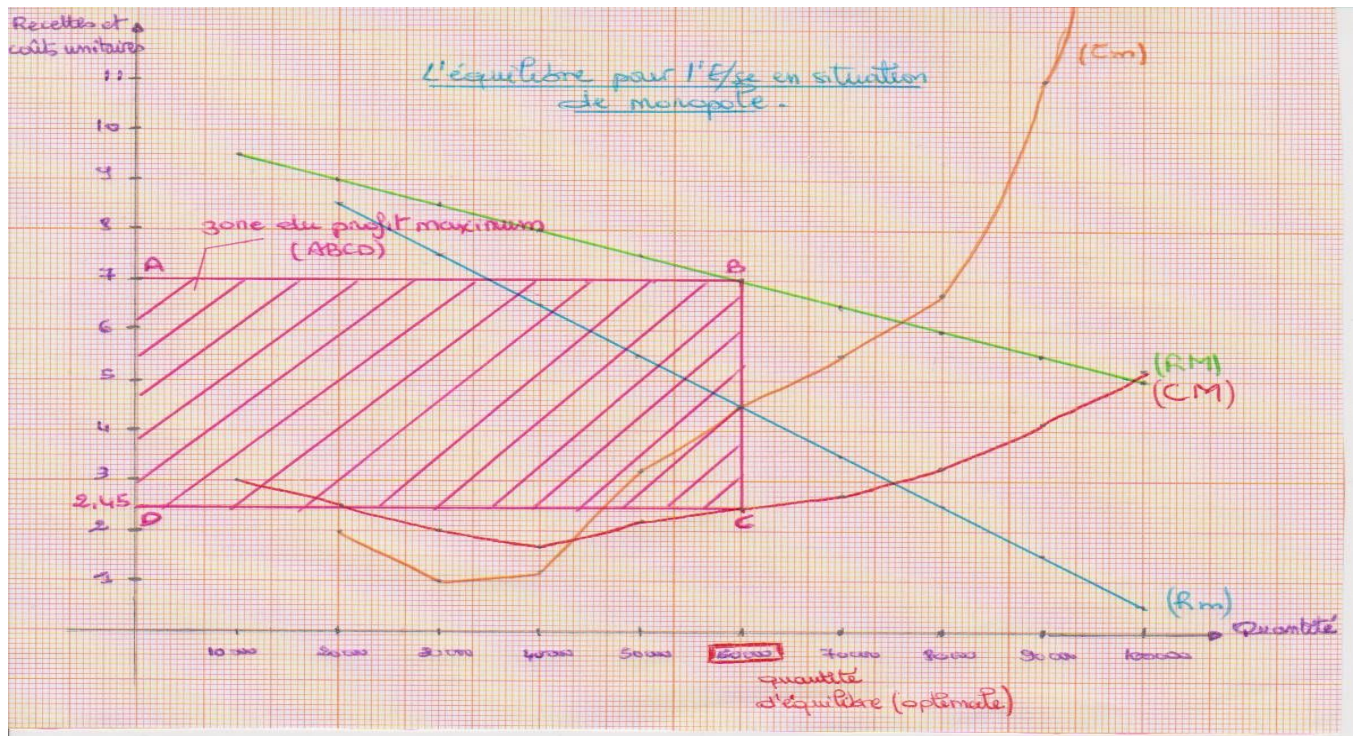 Recettes et
coûts unitaires
L'équilibre pour l'E/se en situation
de monopole.
(Cm)
11
10
9
8
zone du profit maximum
(ABCD)
A
B
7
6
5
(RM)
(CM)
4
3
2,45
D
C
2
1
(Rm)
Quantité
10 000
20 000
30 000
40 000
50 000
60 000
70 000
80 000
90 000
100 000
quantité
d'équilibre (optimale)